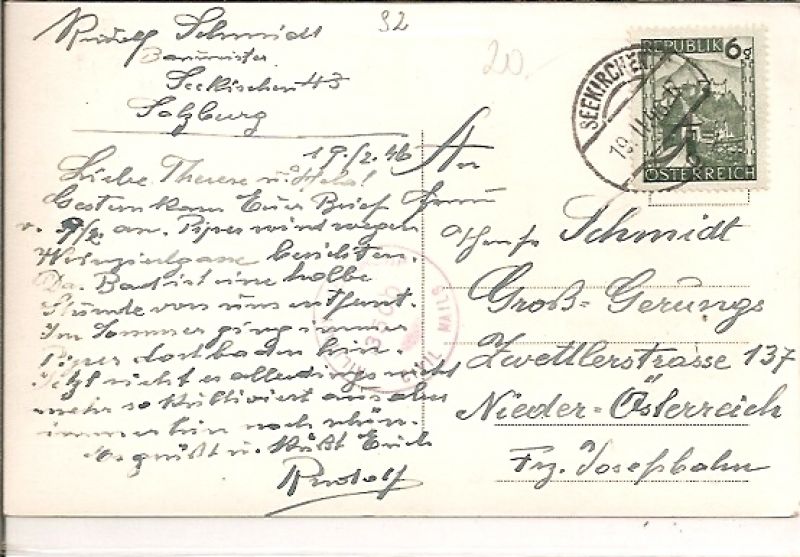 32
20.
Rudolf Schmidt
Baumeister
Seekirchen 43
Salzburg
19./2. 46
Liebe Therese u. Hela!
Gestern kam Euer Brief
v. 9/2. an. Piper wird wegen
berichten.
Da. Bad ist eine halbe
Stunde von uns entfernt.
Im Sommer ging immer
Piper dort baden hin.
Jetzt sieht es allerdings nicht
mehr so kultiviert aus aber
immerhin noch schön.
Es grüßt u. küßt Euch
Rudolf
An
Frau
Schmidt
Groß-Gerungs
Zwettlerstrasse 137
Nieder-Österreich
Frz. Josefbahn
REPUBLIK 6g
ÖSTERREICH
SEEKIRCHEN
19. II. 46
CIVIL MAILS